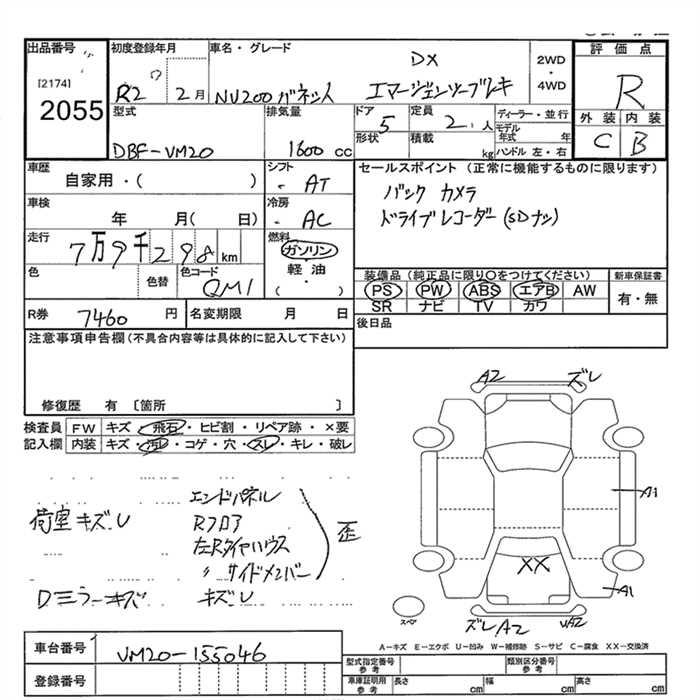 出品番号
[2174]
2055
初度登録年月
R2 2月
車名・グレード
DX
NV200 バネット
エマージェンシーブレーキ
2WD
・
4WD
評価点
R
外装 内装
C B
型式
DBF-VM20
排気量
1600 cc
ドア
5
定員
2人
形状
積載
kg
ディーラー・並行
モデル
年式 年
ハンドル 左・右
車歴
自家用・( )
シフト
- AT
車検
年 月( 日)
冷房
- AC
走行
7万9千298km
燃料
ガソリン
・
軽油
・
( )
色
色替
色コード
QM1
セールスポイント (正常に機能するものに限ります)
バック カメラ
ドライブレコーダー (SDナシ)
装備品 (純正品に限り〇をつけてください)
PS PW ABS エアB AW
SR ナビ TV カワ
新車保証書
有・無
R券 7460円
名変期限 月 日
後日品
注意事項申告欄 (不具合内容等は具体的に記入して下さい)
修復歴 有 〔箇所 〕
検査員
記入欄
FW キズ・飛石・ヒビ割・リペア跡・×要
内装 キズ・汚レ・コゲ・穴・スレ・キレ・破レ
荷室キズU
エンドパネル
Rフロア
左Rタイヤハウス
〃 サイドメンバー
歪
Dミラーキズ
キズU
A2 ズレ
A1
XX
A1
ズレA2
UA2
スペア
A-キズ E-エクボ U-凹み W-補修跡 S-サビ C-腐食 XX-交換済
車台番号
VM20-155046
登録番号
型式指定番号
参考
類別区分番号
参考
車庫証明用
参考
長さ cm
幅 cm
高さ cm